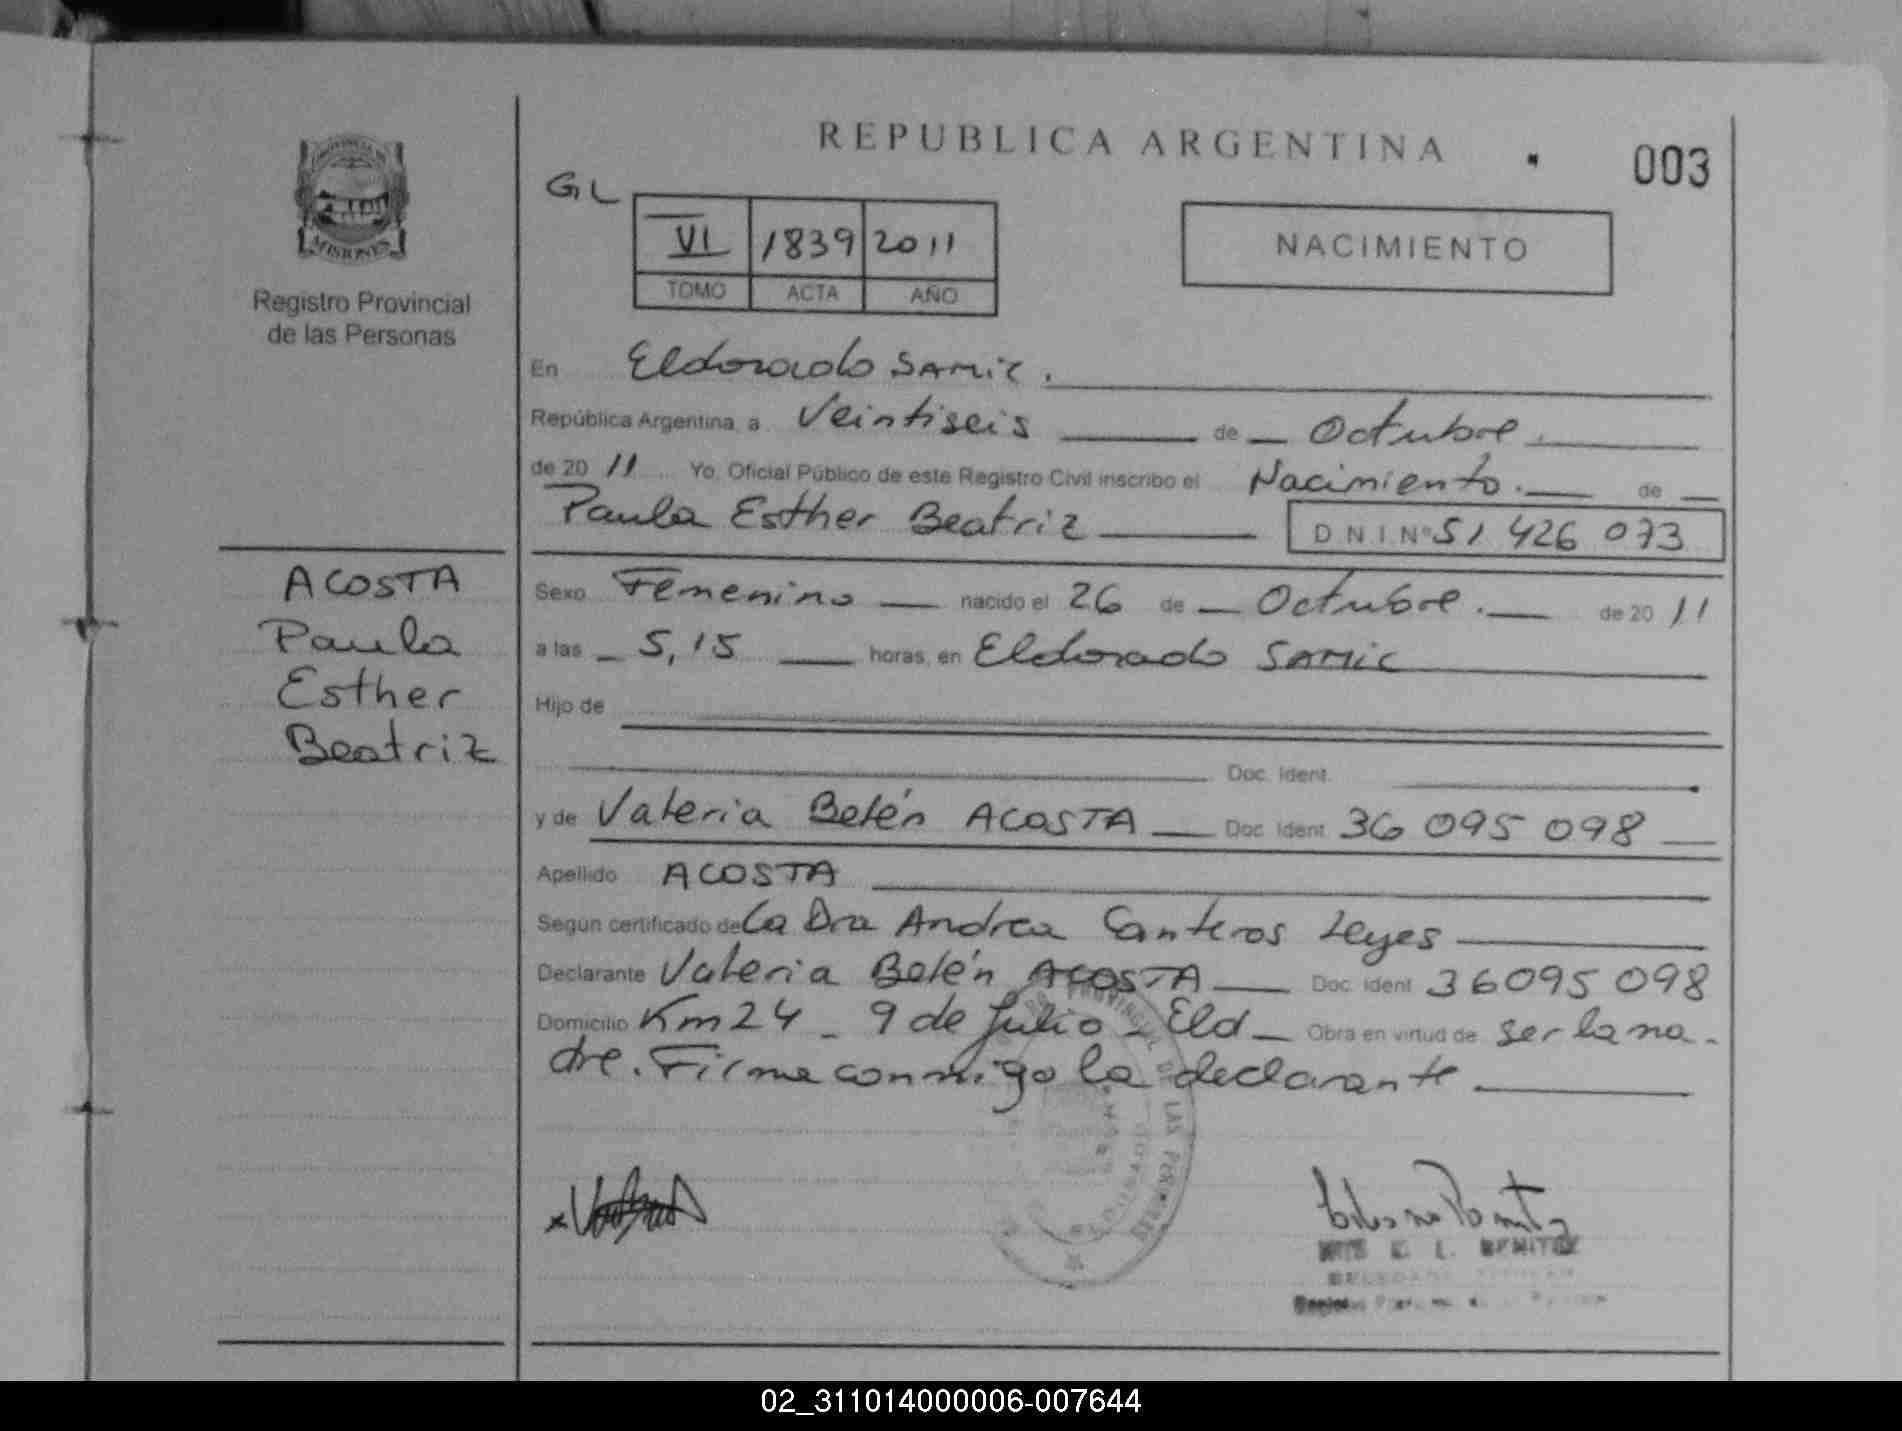 REPUBLICA ARGENTINA
003
PROVINCIA DE
MISIONES
Registro Provincial
de las Personas
GL
VI 1839 2011
TOMO ACTA AÑO
NACIMIENTO
En Eldorado SAMIC.
República Argentina, a Veintiseis de Octubre.
de 20 11 Yo, Oficial Público de este Registro Civil inscribo el Nacimiento. de
Paula Esther Beatriz D N I Nº 51 426 073
ACOSTA
Paula
Esther
Beatriz
Sexo Femenino nacido el 26 de Octubre. de 20 11
a las 5,15 horas, en Eldorado SAMIC
Hijo de
Doc. Ident.
y de Valeria Belén ACOSTA Doc. Ident. 36 095 098
Apellido ACOSTA
Según certificado de La Dra Andrea Canteros Leyes
Declarante Valeria Belén ACOSTA Doc. Ident 36095 098
Domicilio Km 24 - 9 de Julio - Eld Obra en virtud de ser la ma-
dre. Firma conmigo la declarante
PROVINCIAL DE LAS PERSONAS
E. L. BENITEZ
02_311014000006-007644